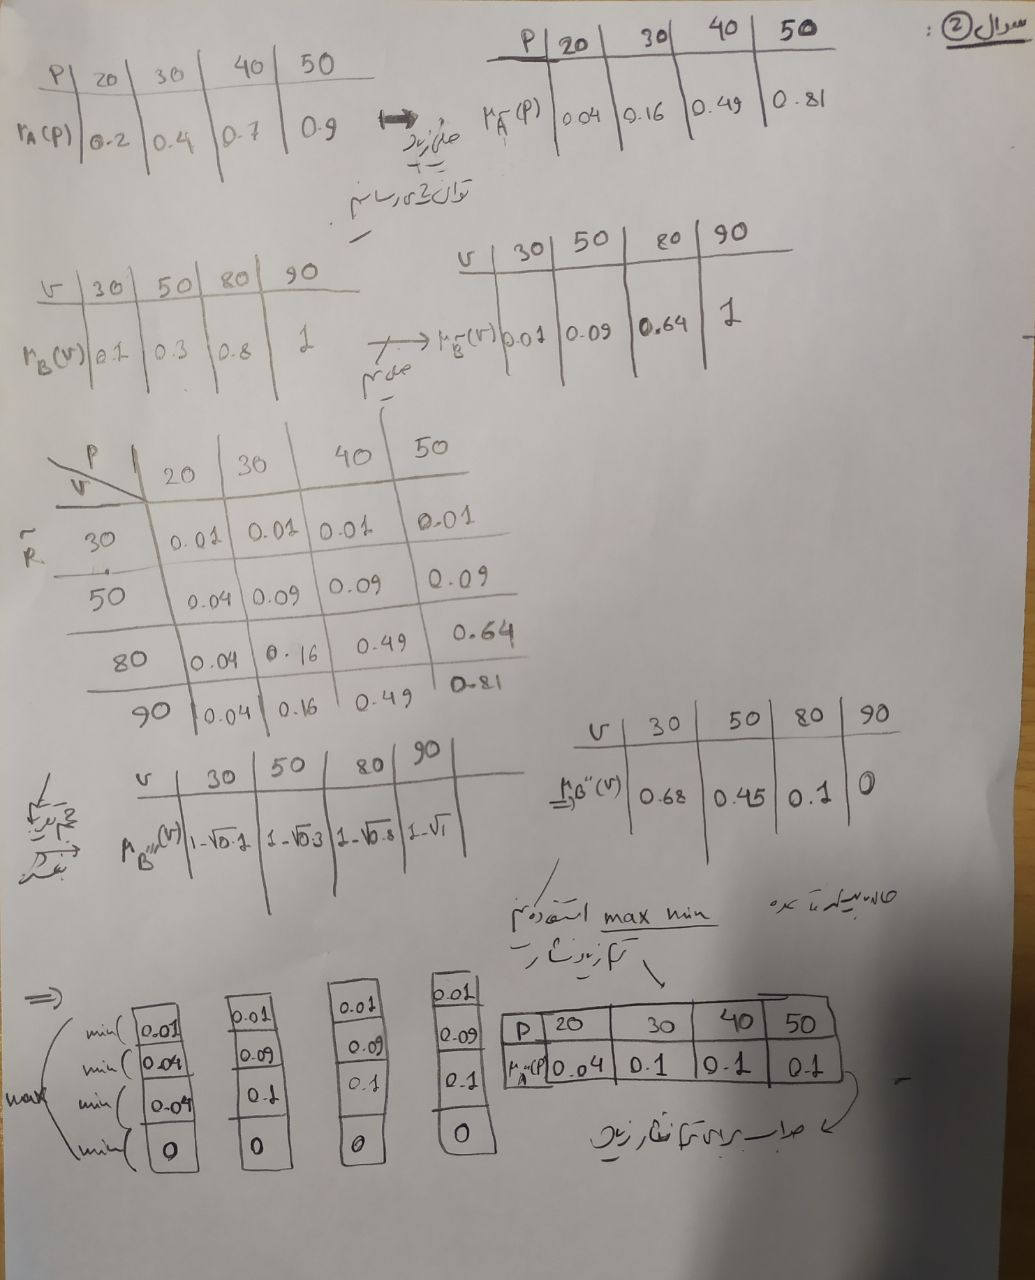 سوال 2 :
P 20 30 40 50
μA(P) 0.2 0.4 0.7 0.9
خیلی زیاد
به توان 2 می رسانیم
P 20 30 40 50
μÃ(P) 0.04 0.16 0.49 0.81
V 30 50 80 90
μB(V) 0.1 0.3 0.8 1
V 30 50 80 90
μB̃(V) 0.01 0.09 0.64 1
P
V 20 30 40 50
R̃
30 0.01 0.01 0.01 0.01
50 0.04 0.09 0.09 0.09
80 0.04 0.16 0.49 0.64
90 0.04 0.16 0.49 0.81
V 30 50 80 90
μB'''(V) 1-√0.1 1-√0.3 1-√0.8 1-√1
V 30 50 80 90
=> μB''(V) 0.68 0.45 0.1 0
max min استفاده
=>
max
min( 0.01 0.01 0.01 0.01
min( 0.04 0.09 0.09 0.09
min( 0.04 0.1 0.1 0.1
min( 0 0 0 0
P 20 30 40 50
μA''(P) 0.04 0.1 0.1 0.1
جواب برای تابع فشار زیاد